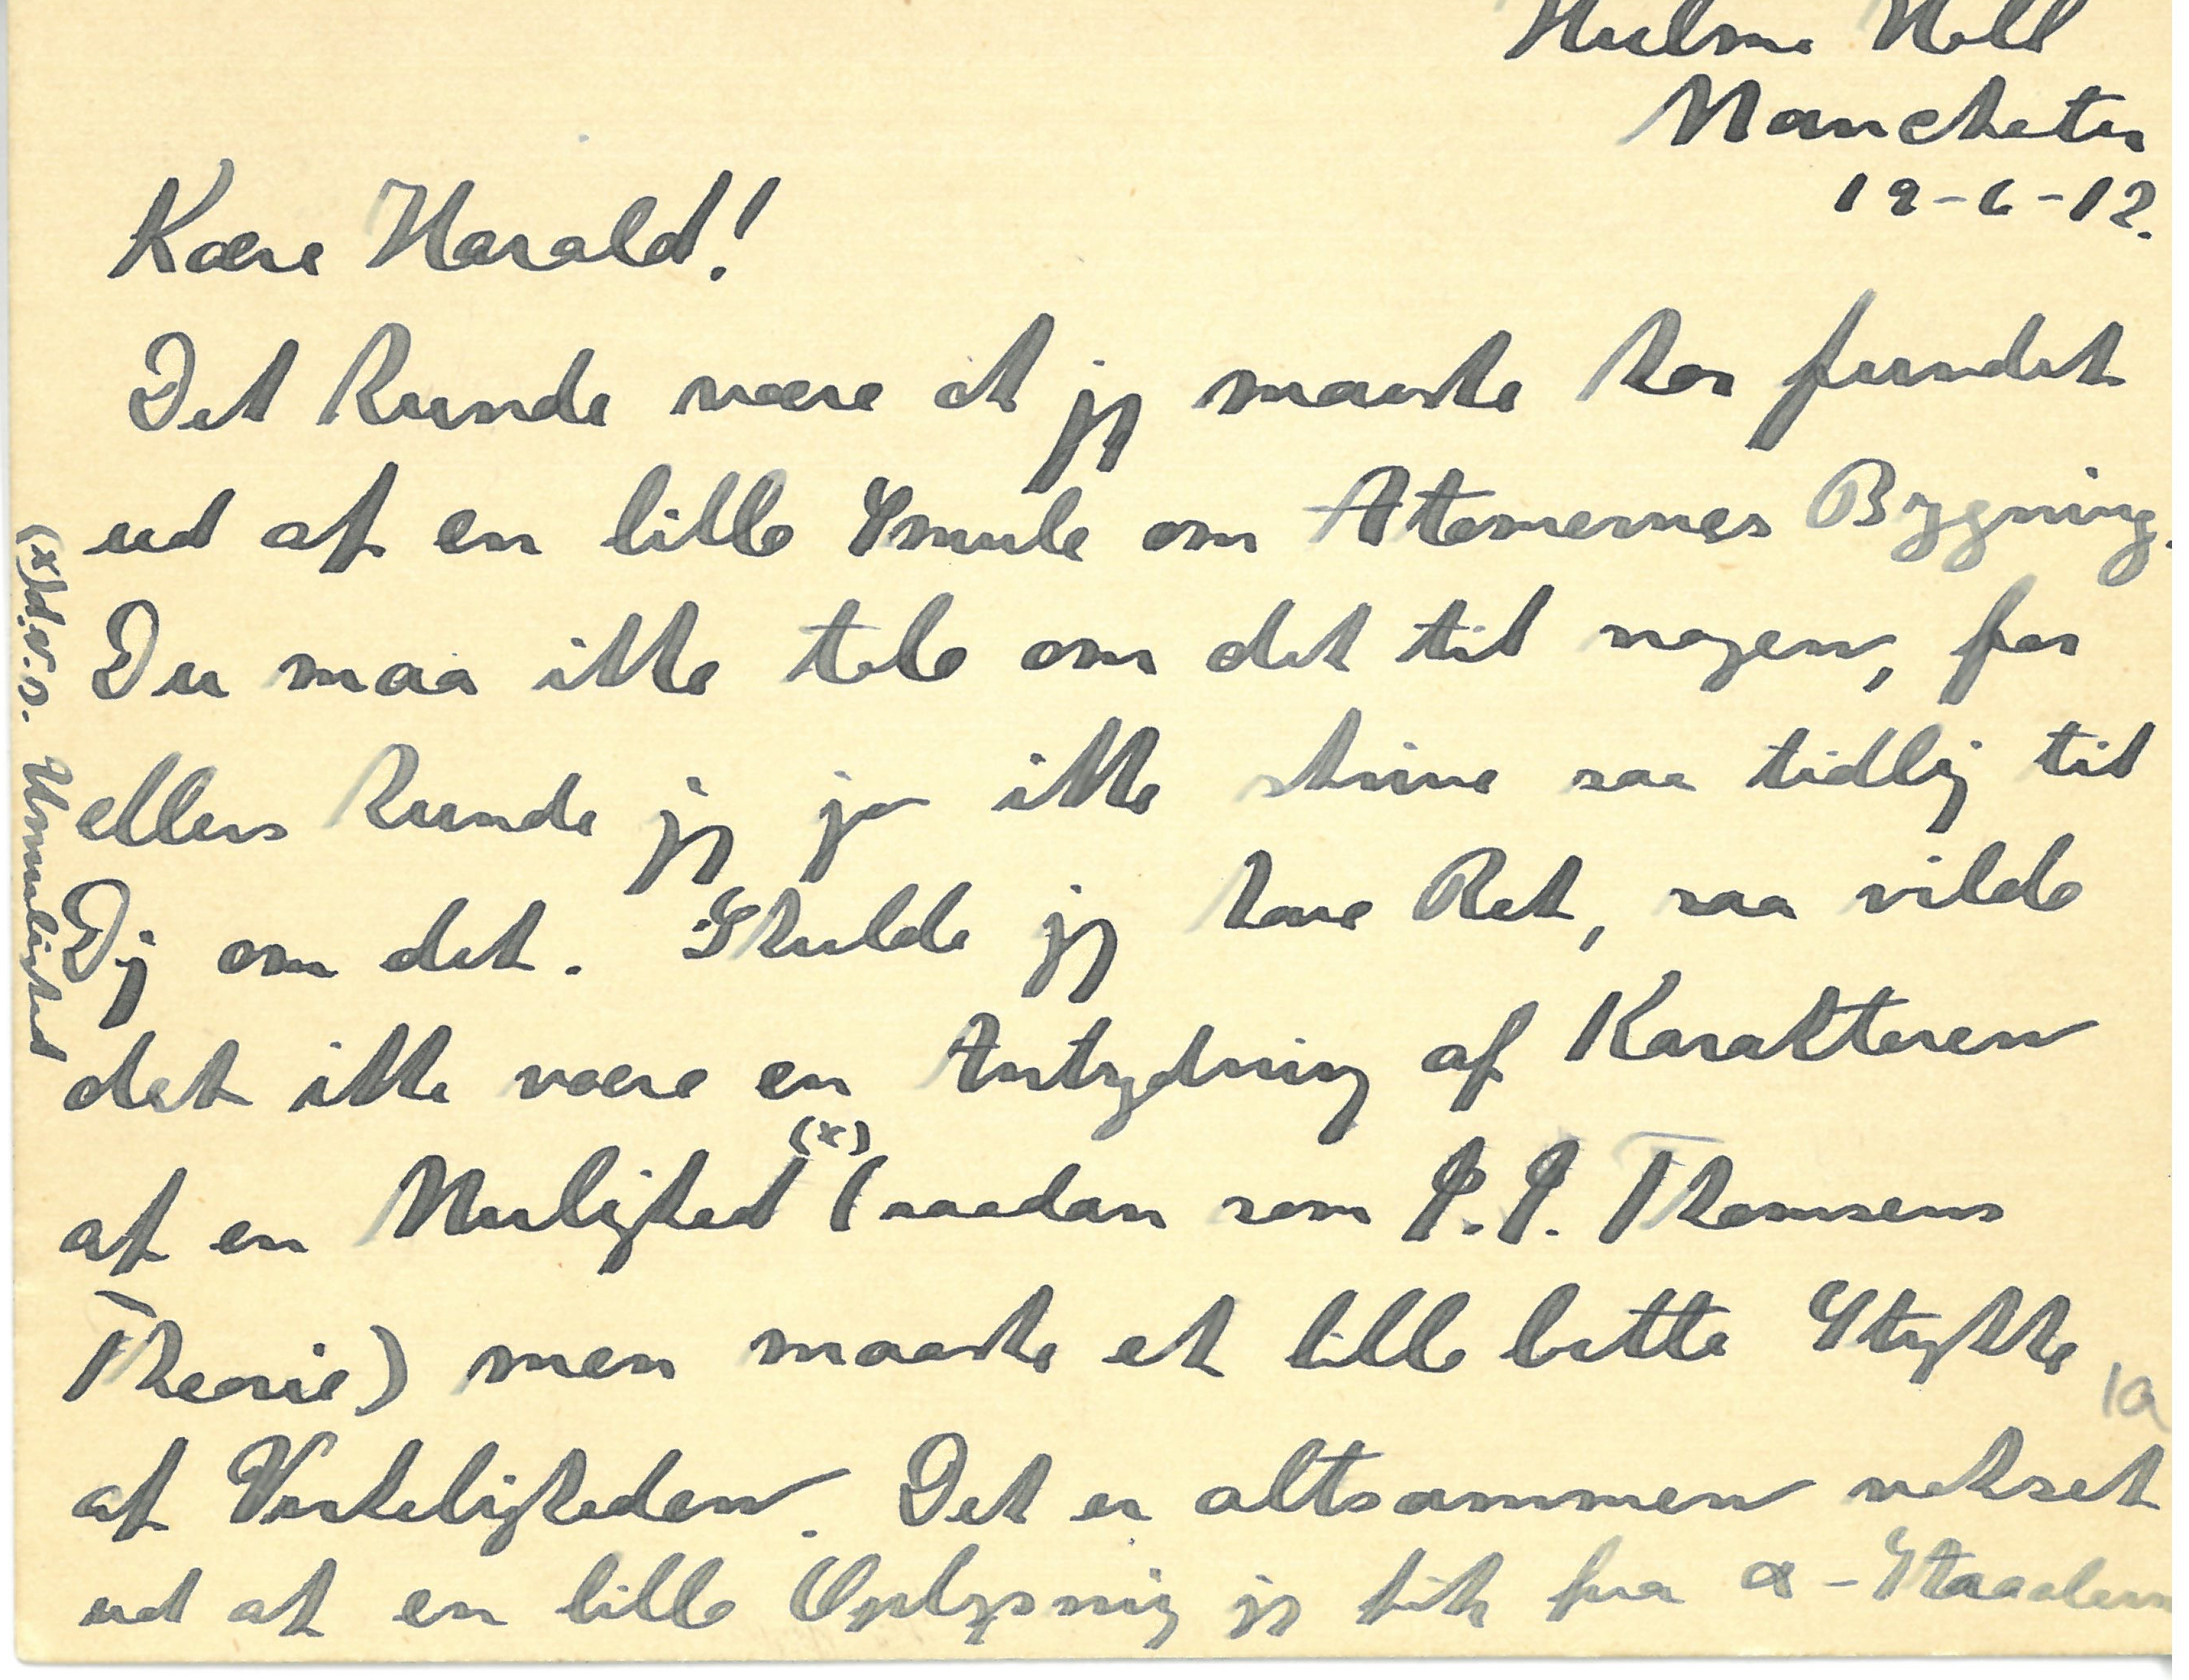 Hulme Hall
Manchester
19-6-12.
Kære Harald!
Det kunde være at jeg maaske har fundet
ud af en lille Smule om Atomernes Bygning.
Du maa ikke tale om det til nogen, for
ellers kunde jeg jo ikke skrive saa tidlig til
Dig om det. Skulde jeg have Ret, saa vilde
det ikke være en Antydning af Karakteren
af en Mulighed (x) (saadan som J. J. Thomsens
Theorie) men maaske et lille bitte Stykke
af Virkeligheden. Det er altsammen vokset
ud af en lille Oplysning jeg fik fra α-Straalern
(x) d.v.s. Umulighed
1a